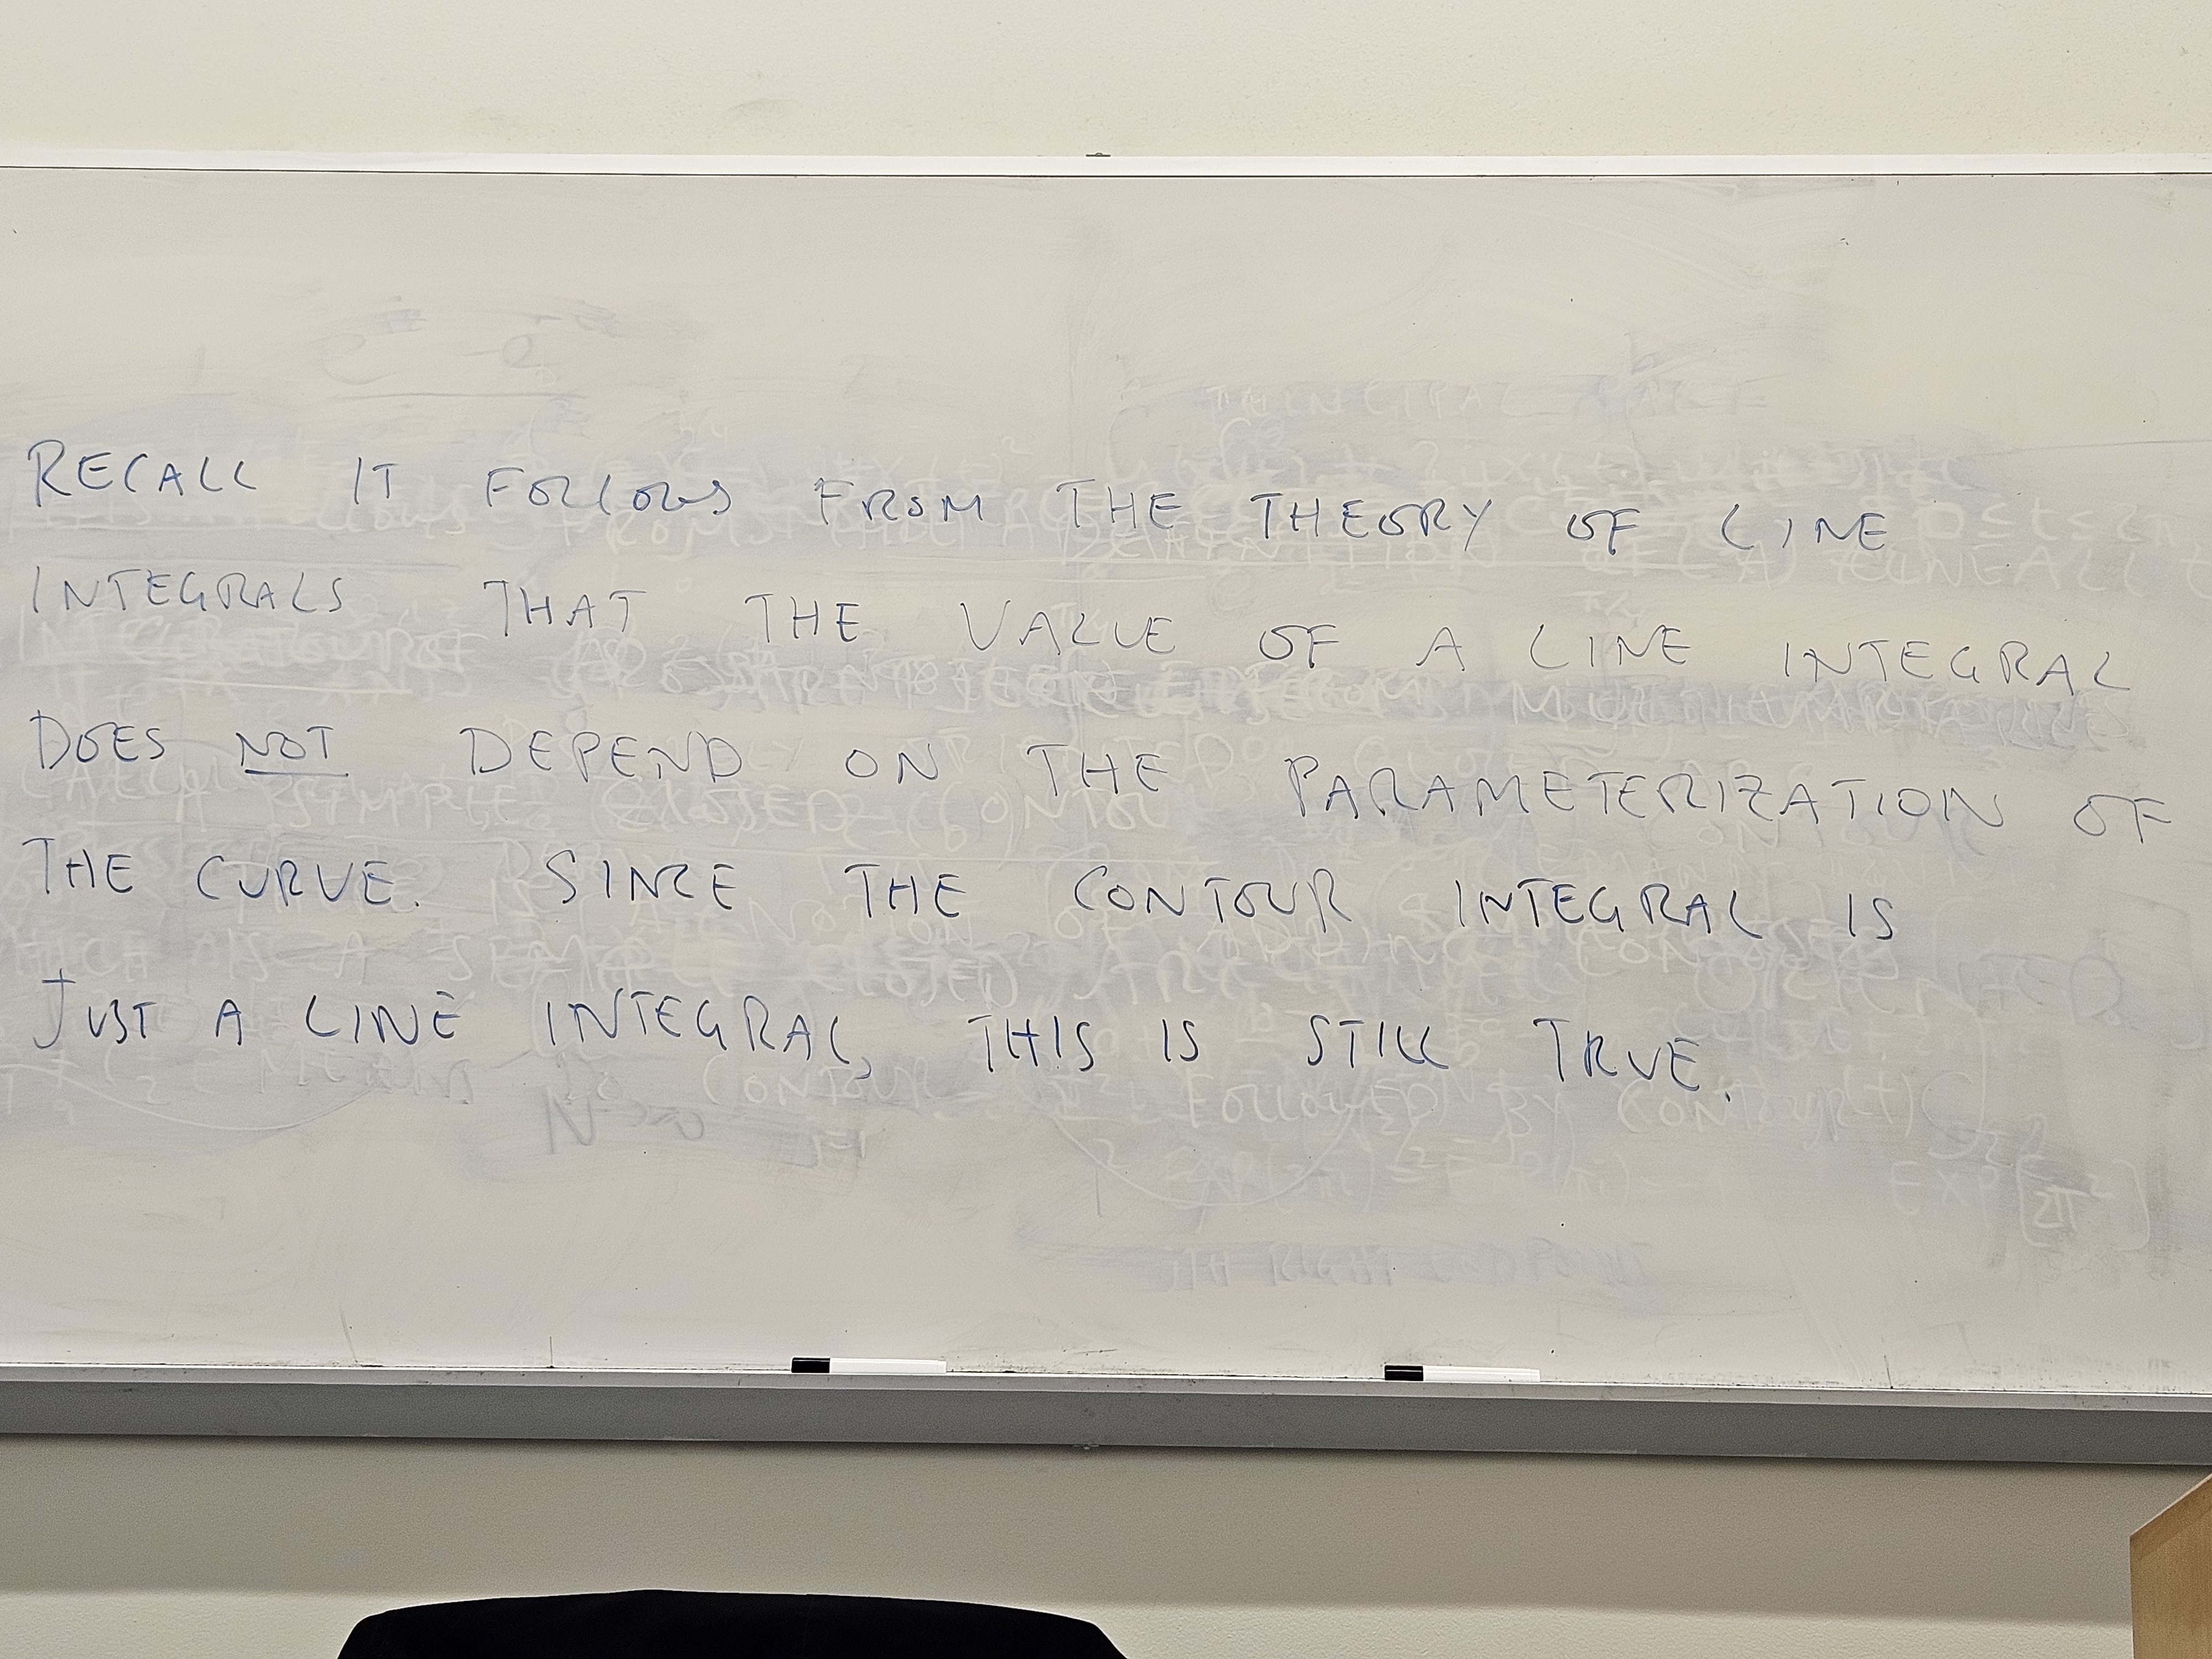 RECALL IT FOLLOWS FROM THE THEORY OF LINE
INTEGRALS THAT THE VALUE OF A LINE INTEGRAL
DOES NOT DEPEND ON THE PARAMETERIZATION OF
THE CURVE. SINCE THE CONTOUR INTEGRAL IS
JUST A LINE INTEGRAL, THIS IS STILL TRUE.